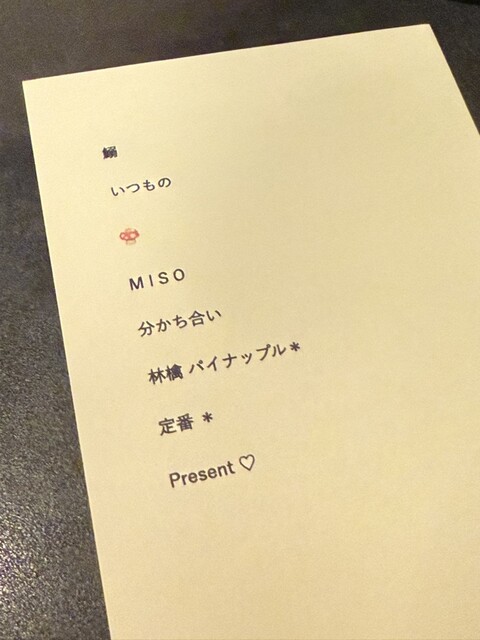 鰯
いつもの
MISO
分かち合い
林檎 パイナップル*
定番 *
Present ♡